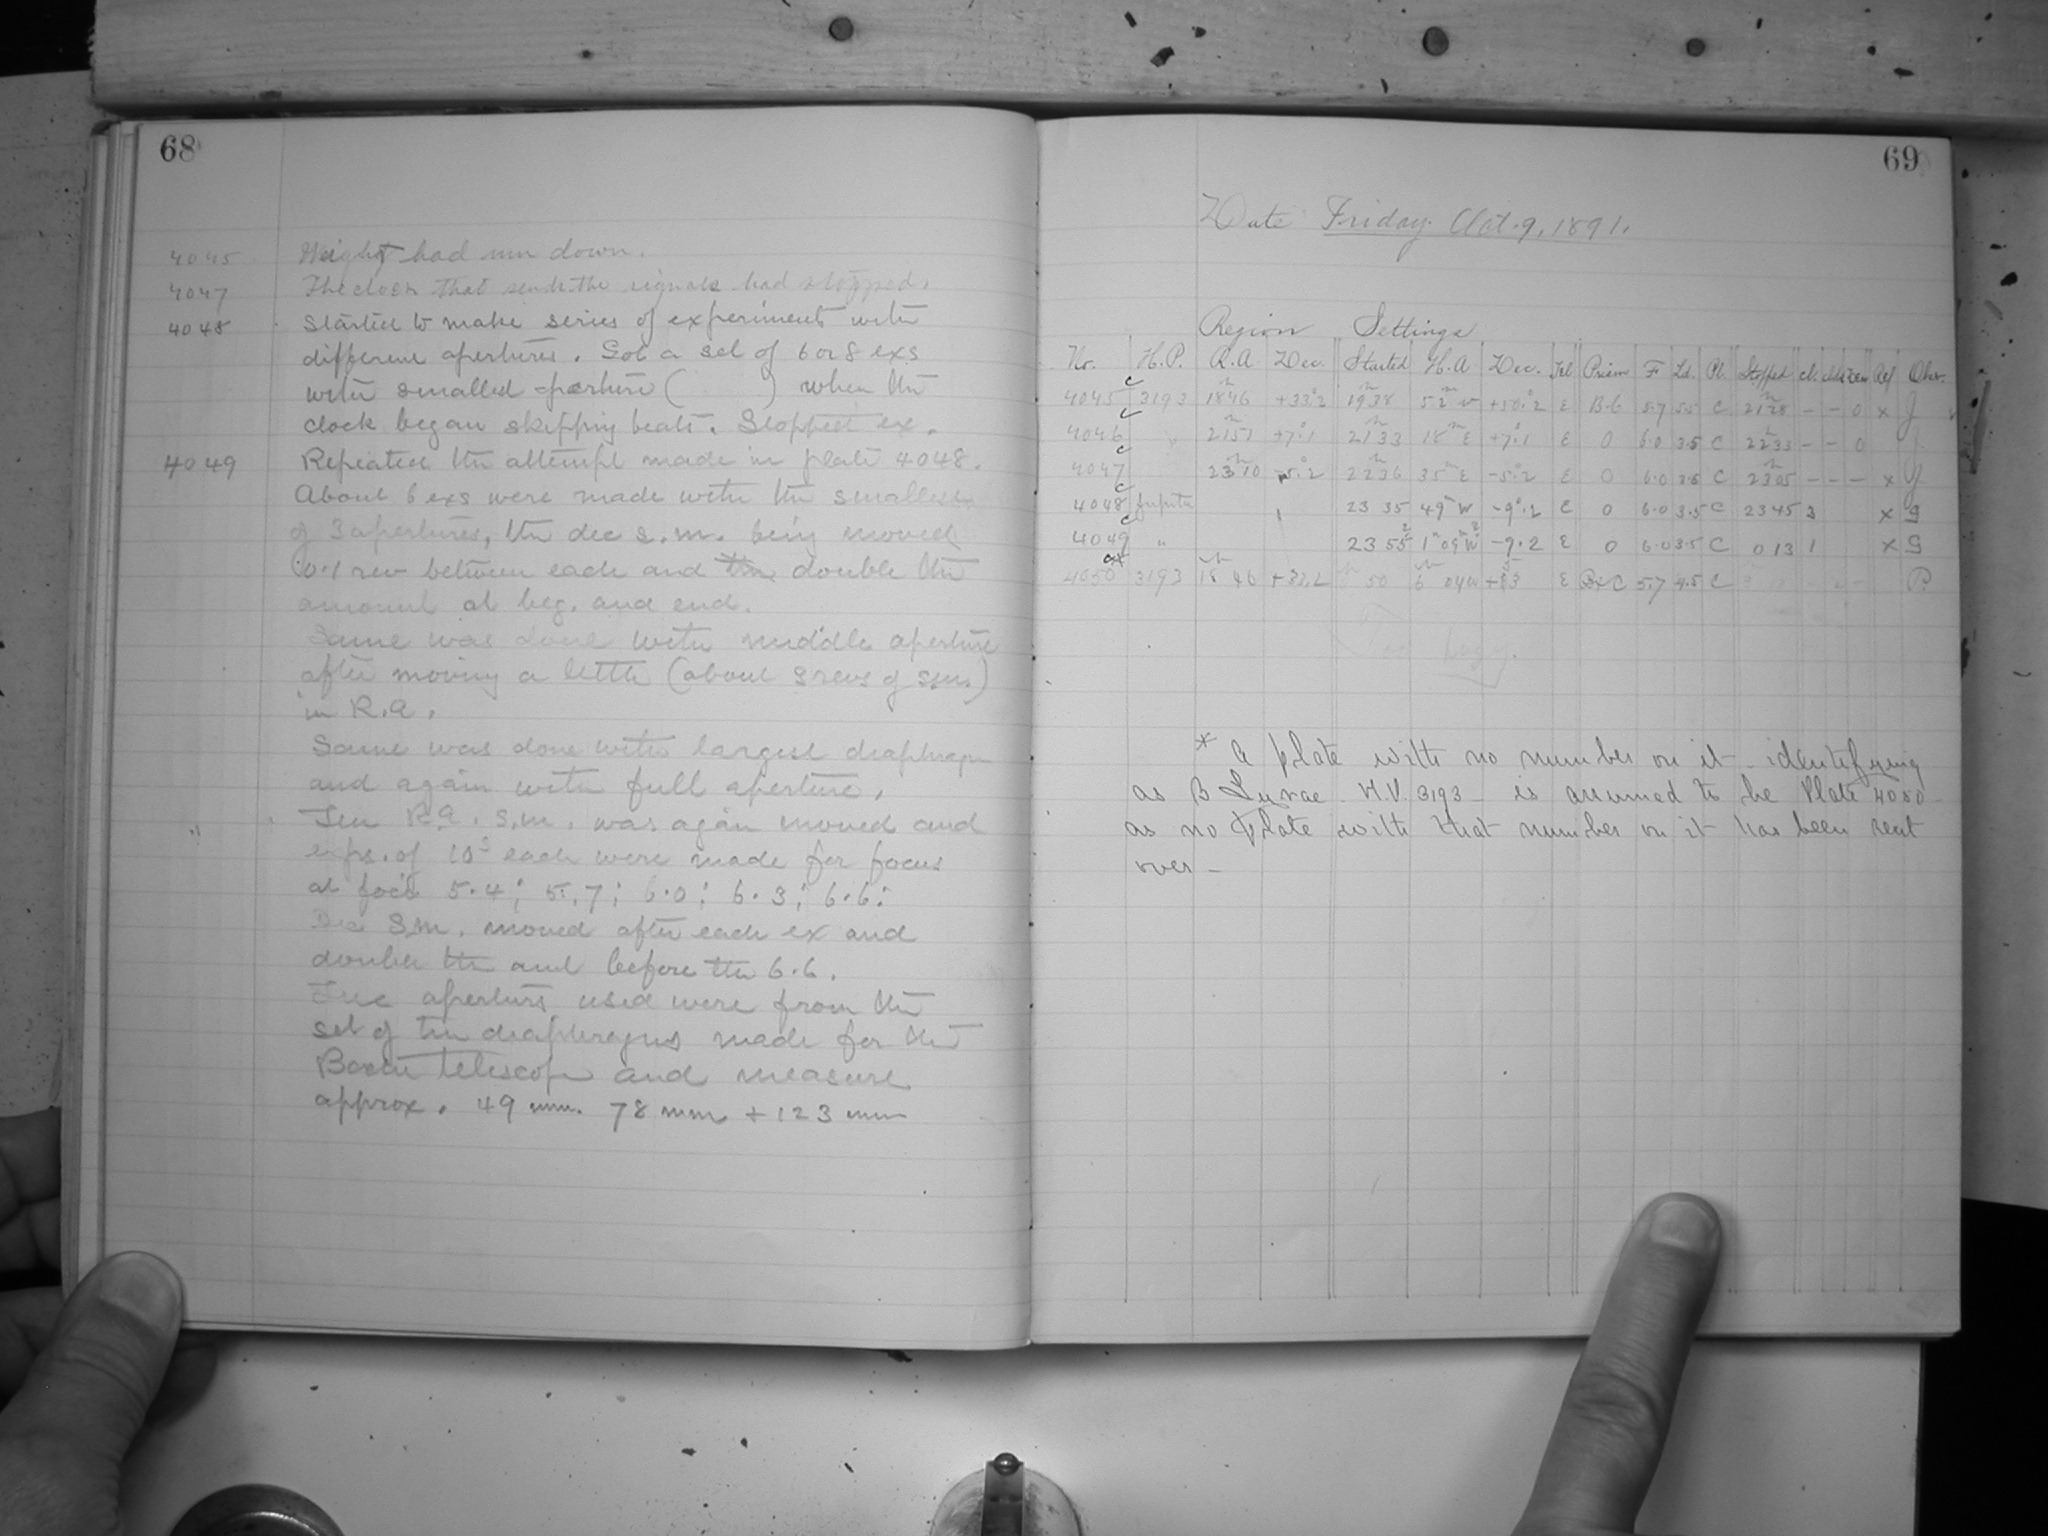 68
4045 Weight had run down.
4047 The clock that sends the signals had stopped.
4048 Started to make series of experiments with
different apertures. Got a set of 6 or 8 exs
with smalled aperture ( ) when the
clock began skipping beats. Stopped ex.
4049 Repeated the attempt made in plate 4048.
About 6 exs were made with the smallest
of 3 apertures, the dec s.m. being moved
0.1 rev between each and the double the
amount at beg. and end.
Same was done with middle aperture
after moving a little (about 3 revs of s.m.)
in R.A.
Same was done with largest diaphragm
and again with full aperture.
R.A. s.m. was again moved and
exps. of 10s each were made for focus
at foci 5.4; 5.7; 6.0; 6.3; 6.6:
Dec S.M. moved after each ex and
double the and before the 6.6.
The apertures used were from the
set of the diaphragms made for the
telescope and measure
approx. 49 mm. 78 mm + 123 mm
69
Date Friday Oct. 9, 1891.
Region Settings
No. H.P. R.A Dec. Started H.A Dec. Tel Prism F Ld. Pl. Stopped cl. Ref Obser.
4045 c 3193 1846 +33°.2 1938 52m W +50°.2 E B.C 5.7 5.5 C 2128 - - 0 x
4046 c " 2151 +7°.1 2133 18m E +7°.1 E 0 6.0 3.5 C 2233 - - 0
4047 c 2310 -5.2 2236 35m E -5°.2 E 0 6.0 3.5 C 2305 - - - x
4048 c Jupiter 23 35 49m W -9°.2 E 0 6.0 3.5 C 2345 3 x S
4049 c " 23 55 1h 09m W -9.2 E 0 6.0 3.5 C 0 13 1 x S
4050 * 3193 18 46 +33.2 50 6 04W E B+C 5.7 4.5 C P.
* A plate with no number on it identifying
as B Lyrae H.P. 3193 is assumed to be Plate 4050
as no plate with that number on it has been sent
over -